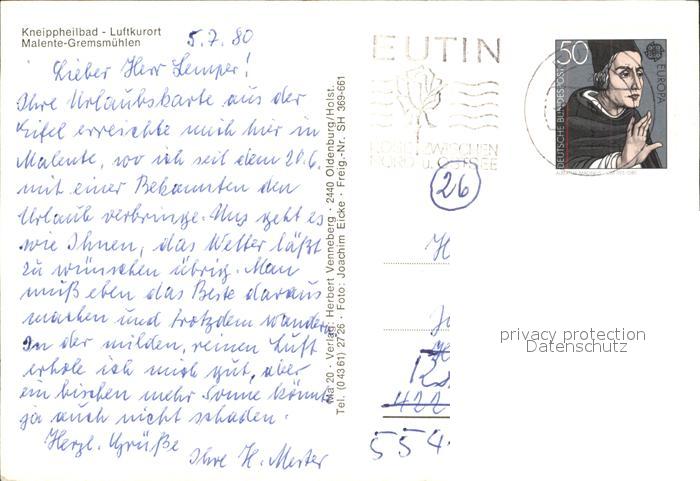 Kneippheilbad - Luftkurort
Malente-Gremsmühlen
5.7.80
Lieber Herr Lemper!
Ihre Urlaubskarte aus der
Eifel erreichte mich hier in
Malente, wo ich seit dem 20.6.
mit einer Bekannten den
Urlaub verbringe. Uns geht es
wie Ihnen, das Wetter läßt
zu wünschen übrig. Man
muß eben das Beste daraus
machen und trotzdem wandern.
In der milden, reinen Luft
erhole ich mich gut, aber
ein bischen mehr Sonne könnte
ja auch nicht schaden.
Herzl. Grüße
Ihre H. Mester
Ma 20 - Verlag: Herbert Venneberg - 2440 Oldenburg/Holst.
Tel. (04361) 2726 - Foto: Joachim Eicke - Freig.-Nr. SH 369-661
EUTIN
ROSE ZWISCHEN
NORD u. OSTSEE
50
EUROPA
DEUTSCHE BUNDESPOST
26
H
422
554
privacy protection
Datenschutz